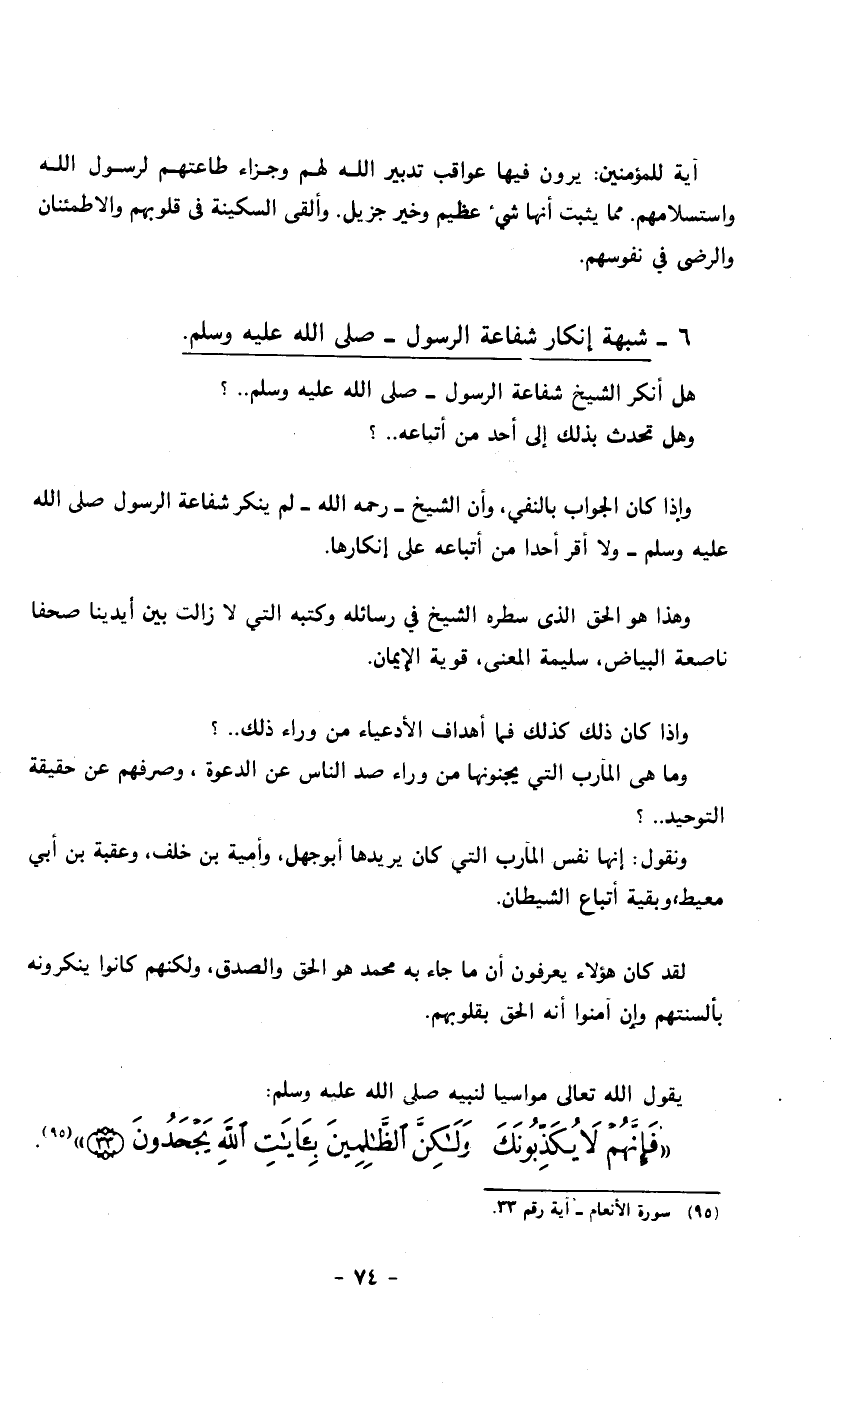 آية للمؤمنين: يرون فيها عواقب تدبير اللـه لهم وجـزاء طاعتهـم لرسـول اللـه
واستسلامهم. مما يثبت أنها شيء عظيم وخير جزيل. وألقى السكينة فى قلوبهم والاطمئنان
والرضى في نفوسهم.
٦ ـ شبهة إنكار شفاعة الرسول ـ صلى الله عليه وسلم.
هل أنكر الشيخ شفاعة الرسول ـ صلى الله عليه وسلم.. ؟
وهل تحدث بذلك إلى أحد من أتباعه.. ؟
وإذا كان الجواب بالنفي، وأن الشيخ ـ رحمه الله ـ لم ينكر شفاعة الرسول صلى الله
عليه وسلم ـ ولا أقر أحدا من أتباعه على إنكارها.
وهذا هو الحق الذى سطره الشيخ في رسائله وكتبه التي لا زالت بين أيدينا صحفا
ناصعة البياض، سليمة المعنى، قوية الإيمان.
واذا كان ذلك كذلك فما أهداف الأدعياء من وراء ذلك.. ؟
وما هى المآرب التي يجنونها من وراء صد الناس عن الدعوة ، وصرفهم عن حقيقة
التوحيد.. ؟
ونقول: إنها نفس المآرب التي كان يريدها أبوجهل، وأمية بن خلف، وعقبة بن أبي
معيط،وبقية أتباع الشيطان.
لقد كان هؤلاء يعرفون أن ما جاء به محمد هو الحق والصدق، ولكنهم كانوا ينكرونه
بألسنتهم وإن آمنوا أنه الحق بقلوبهم.
يقول الله تعالى مواسيا لنبيه صلى الله عليه وسلم:
«فَإِنَّهُمْ لَا يُكَذِّبُونَكَ وَلَـٰكِنَّ ٱلظَّـٰلِمِينَ بِـَٔايَـٰتِ ٱللَّهِ يَجْحَدُونَ ﴿٣٣﴾»(٩٥).
(٩٥) سورة الأنعام ـ آية رقم ٣٣.
- ٧٤ -